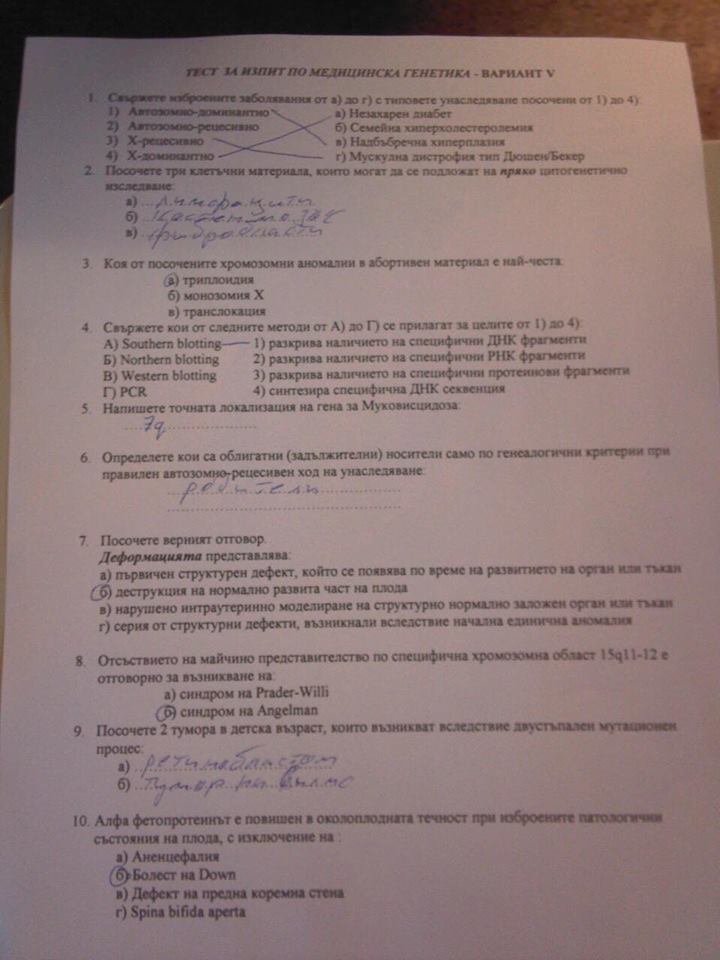 ТЕСТ ЗА ИЗПИТ ПО МЕДИЦИНСКА ГЕНЕТИКА - ВАРИАНТ V
1. Свържете изброените заболявания от а) до г) с типовете унаследяване посочени от 1) до 4):
1) Автозомно-доминантно а) Незахарен диабет
2) Автозомно-рецесивно б) Семейна хиперхолестеролемия
3) Х-рецесивно в) Надбъбречна хиперплазия
4) Х-доминантно г) Мускулна дистрофия тип Дюшен/Бекер
2. Посочете три клетъчни материала, които могат да се подложат на пряко цитогенетично
изследване:
а) лимфоцити
б) костен мозък
в) фибробласти
3. Коя от посочените хромозомни аномалии в абортивен материал е най-честа:
а) триплоидия
б) монозомия Х
в) транслокация
4. Свържете кои от следните методи от А) до Г) се прилагат за целите от 1) до 4):
А) Southern blotting 1) разкрива наличието на специфични ДНК фрагменти
Б) Northern blotting 2) разкрива наличието на специфични РНК фрагменти
В) Western blotting 3) разкрива наличието на специфични протеинови фрагменти
Г) PCR 4) синтезира специфична ДНК секвенция
5. Напишете точната локализация на гена за Муковисцидоза:
7q
6. Определете кои са облигатни (задължителни) носители само по генеалогични критерии при
правилен автозомно-рецесивен ход на унаследяване:
родители
7. Посочете верният отговор.
Деформацията представлява:
а) първичен структурен дефект, който се появява по време на развитието на орган или тъкан
б) деструкция на нормално развита част на плода
в) нарушено интраутеринно моделиране на структурно нормално заложен орган или тъкан
г) серия от структурни дефекти, възникнали вследствие начална единична аномалия
8. Отсъствието на майчино представителство по специфична хромозомна област 15q11-12 е
отговорно за възникване на:
а) синдром на Prader-Willi
б) синдром на Angelman
9. Посочете 2 тумора в детска възраст, които възникват вследствие двустъпален мутационен
процес:
а) ретинобластом
б) тумор на Вилмс
10. Алфа фетопротеинът е повишен в околоплодната течност при изброените патологични
състояния на плода, с изключение на :
а) Аненцефалия
б) Болест на Down
в) Дефект на предна коремна стена
г) Spina bifida aperta